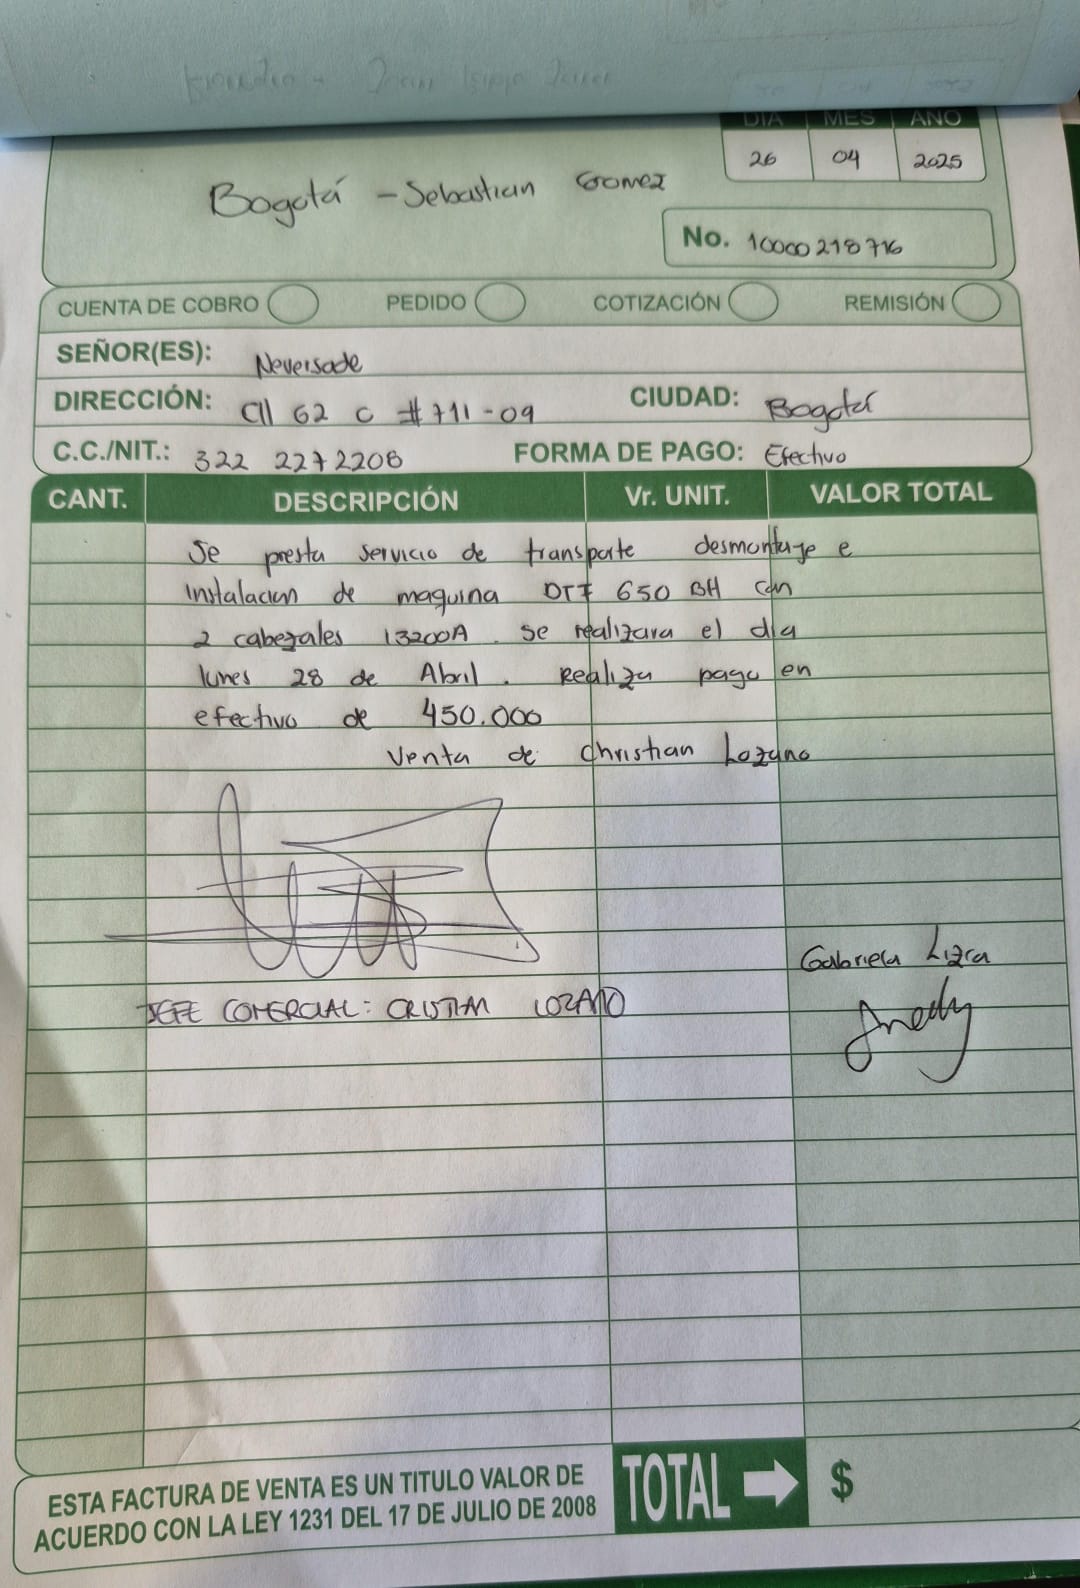 DIA MES AÑO
26 04 2025
Bogotá - Sebastian Gomez
No. 10000218716
CUENTA DE COBRO PEDIDO COTIZACIÓN REMISIÓN
SEÑOR(ES): Neversade
DIRECCIÓN: Cll 62 C #71i-09 CIUDAD: Bogotá
C.C./NIT.: 322 2272208 FORMA DE PAGO: Efectivo
CANT. DESCRIPCIÓN Vr. UNIT. VALOR TOTAL
Se presta servicio de transporte desmontaje e
instalacion de maquina DTF 650 BH con
2 cabezales i3200A. se realizara el dia
lunes 28 de Abril. Realiza pago en
efectivo de 450.000
Venta de Christian Lozano
Gabriela Lizca
JEFE COMERCIAL: CRISTIAN LOZANO
ESTA FACTURA DE VENTA ES UN TITULO VALOR DE
ACUERDO CON LA LEY 1231 DEL 17 DE JULIO DE 2008
TOTAL $